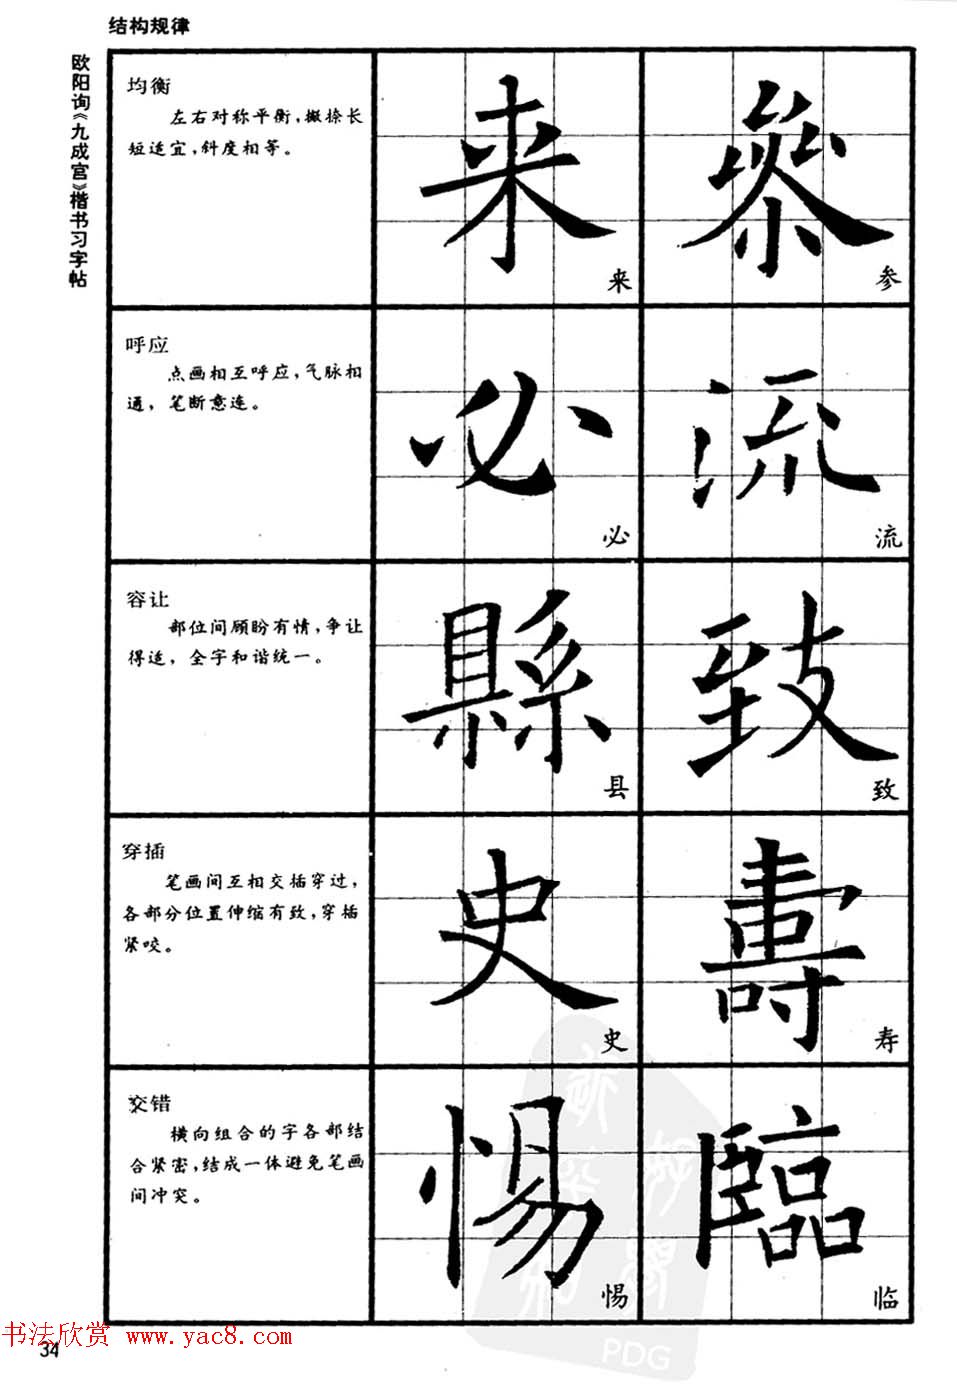 结构规律
欧阳询《九成宫》楷书习字帖
均衡
左右对称平衡，撇捺长
短适宜，斜度相等。
来
來
参
參
呼应
点画相互呼应，气脉相
通，笔断意连。
必
必
流
流
容让
部位间顾盼有情，争让
得适，全字和谐统一。
縣
县
致
致
穿插
笔画间互相交插穿过，
各部分位置伸缩有致，穿插
紧咬。
史
史
壽
寿
交错
横向组合的字各部结
合紧密，结成一体避免笔画
间冲突。
惕
惕
臨
临
书法欣赏 www.yac8.com
34
PDG